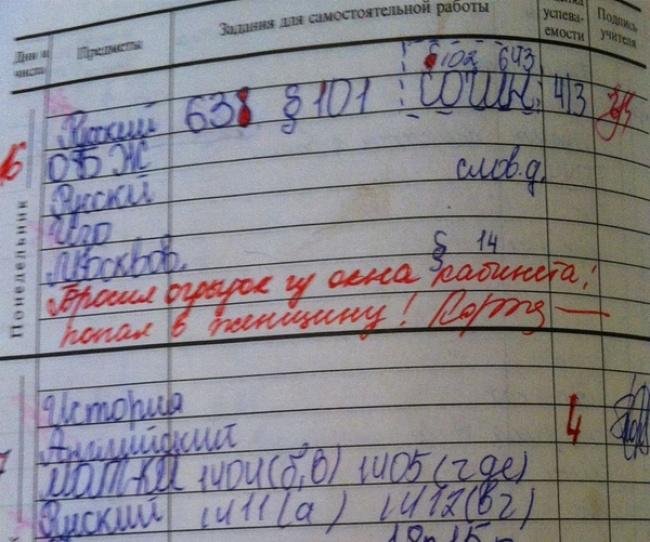 Дни и числа Предметы Задания для самостоятельной работы успева- емости Подпись учителя
§102 643
Русский 638 §101 СОЧИН. 4/3
16
ОБЖ
Рускій слов.д.
Изо
Москвов. § 14
Понедельник
Бросил огрызок из окна кабинета,
попал в женщину!
История
Английский 4
МАТ-КИ 1404(б,в) 1405(г де)
Руский 1411(а) 1412(вг)